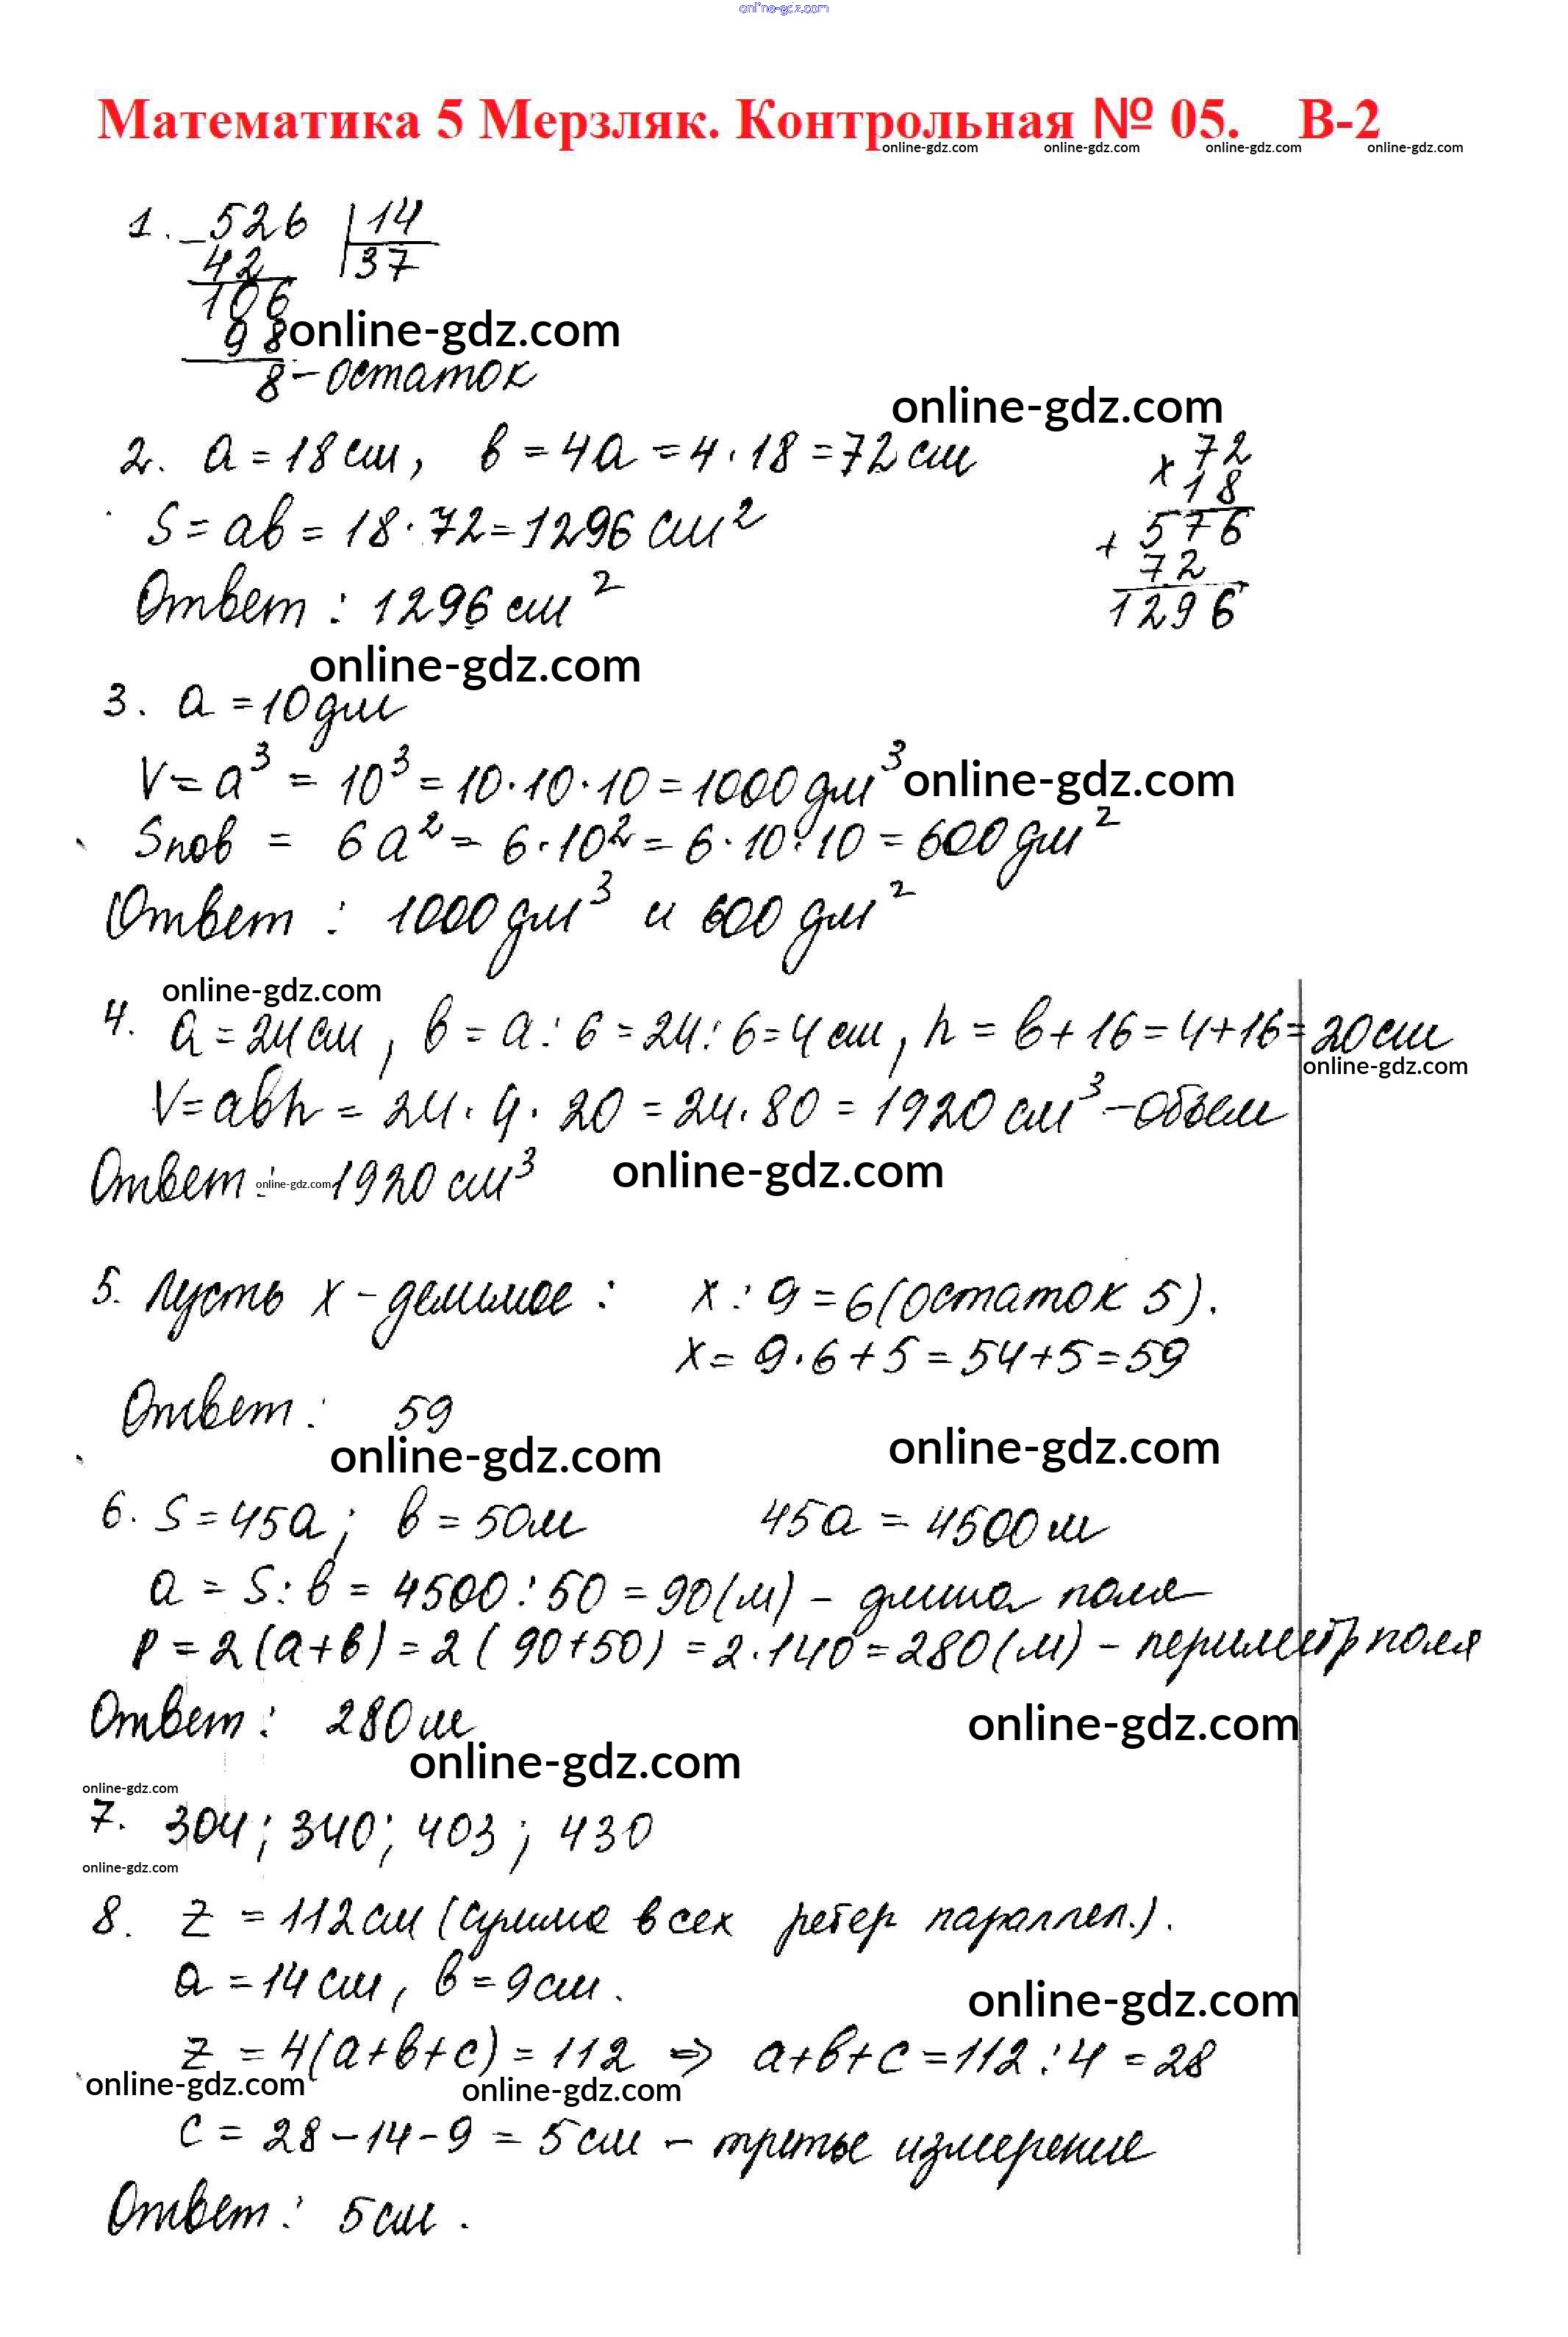 online-gdz.com
Математика 5 Мерзляк. Контрольная № 05. В-2
online-gdz.com online-gdz.com online-gdz.com online-gdz.com
1. _ 526 | 14
42 37
106
98 online-gdz.com
8 - остаток
online-gdz.com
2. a = 18 см, в = 4a = 4 · 18 = 72 см
S = aв = 18 · 72 = 1296 см²
Ответ: 1296 см²
x 72
18
+ 576
72
1296
online-gdz.com
3. a = 10 дм
V = a³ = 10³ = 10 · 10 · 10 = 1000 дм³ online-gdz.com
Sпов = 6a² = 6 · 10² = 6 · 10 · 10 = 600 дм²
Ответ: 1000 дм³ и 600 дм²
online-gdz.com
4. a = 24 см, в = a : 6 = 24 : 6 = 4 см, h = в + 16 = 4 + 16 = 20 см
online-gdz.com
V = aвh = 24 · 4 · 20 = 24 · 80 = 1920 см³ - объем
Ответ: online-gdz.com 1920 см³ online-gdz.com
5. Пусть x - делимое : x : 9 = 6 (остаток 5).
x = 9 · 6 + 5 = 54 + 5 = 59
Ответ: 59
online-gdz.com online-gdz.com
6. S = 45a; в = 50 м 45a = 4500 м
a = S : в = 4500 : 50 = 90 (м) - длина поля
P = 2(a + в) = 2(90 + 50) = 2 · 140 = 280 (м) - периметр поля
Ответ: 280 м online-gdz.com
online-gdz.com
online-gdz.com
7. 304; 340; 403; 430
online-gdz.com
8. z = 112 см (сумма всех ребер параллел.).
a = 14 см, в = 9 см.
online-gdz.com
z = 4(a + в + c) = 112 ⇒ a + в + c = 112 : 4 = 28
online-gdz.com online-gdz.com
c = 28 - 14 - 9 = 5 см - третье измерение
Ответ: 5 см.